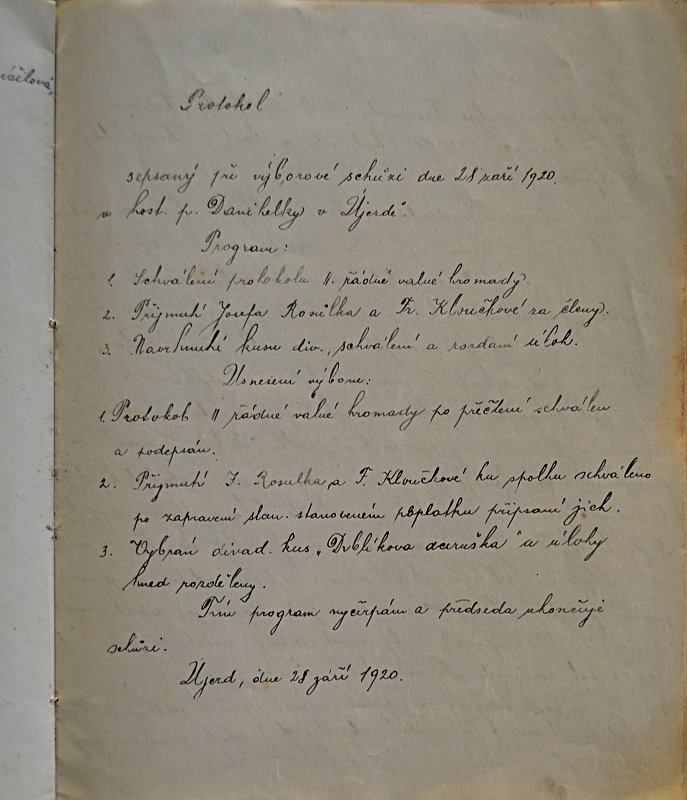 Protokol
sepsaný při výborové schůzi dne 28 září 1920,
v host. p. Danihelky v Újezdě.
Program:
1. Schválení protokolu II. řádné valné hromady.
2. Přijmutí Josefa Rosůlka a Fr. Kloučkové za členy.
3. Navrhnutí kusu div., schválení a rozdání úloh.
Usnesení výboru:
1. Protokol II řádné valné hromady po přečtení schválen
a podepsán.
2. Přijmutí J. Rosulka a F. Kloučkové ku spolku schváleno
po zapravení stan. stanoveném poplatku připsaní jich.
3. Vybrán divad. kus „Dr̃blíkova dceruška" a úlohy
hned rozděleny.
Tím program vyčerpán a předseda ukončuje
schůzi.
Újezd, dne 28 září 1920.